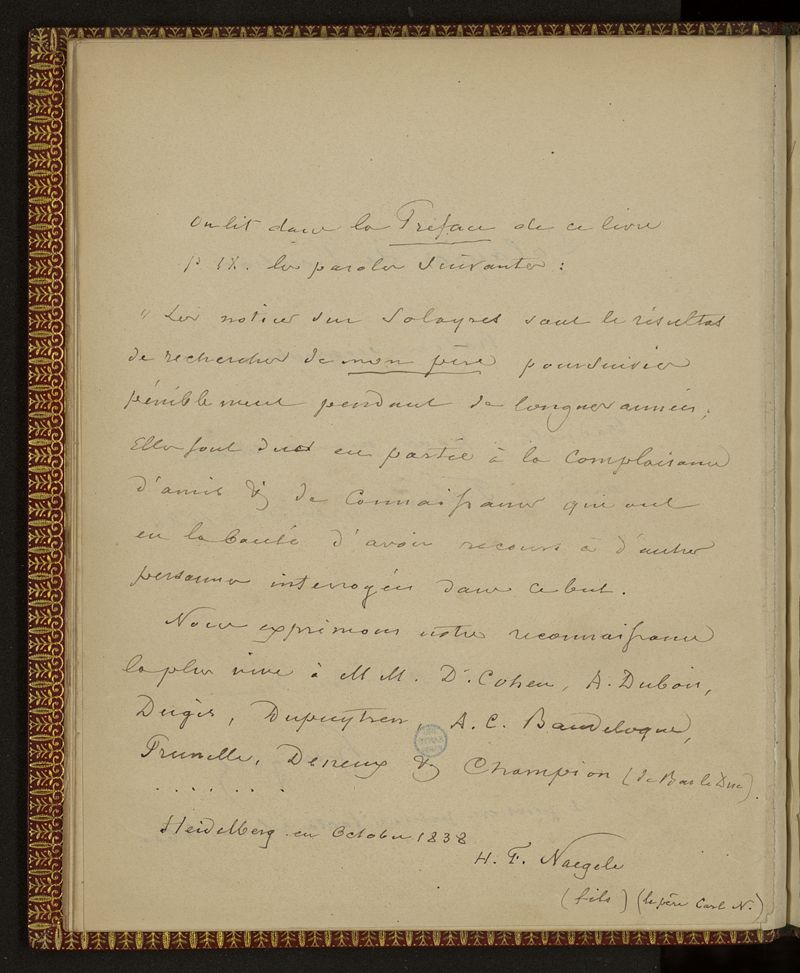 On lit dans la Préface de ce livre
p IX. les paroles suivantes :
" Les notices sur Solayres sont le résultat
de recherches de mon père poursuivies
péniblement pendant de longues années ;
Elles sont dues en partie à la complaisance
d'amis & de connaissances qui ont
eu la bonté d'avoir recours à d'autres
personnes interrogées dans ce but.
Nous exprimons notre reconnaissance
la plus vive à M M. Dr. Cohen, A. Dubois,
Dugès, Dupuytren, A. C. Baudelocque,
Prunelle, Deneux & Champion (de Bar le Duc).
. . . . . . .
Heidelberg en Octobre 1838
H. F. Naegele
(fils) (le père Carl N.)